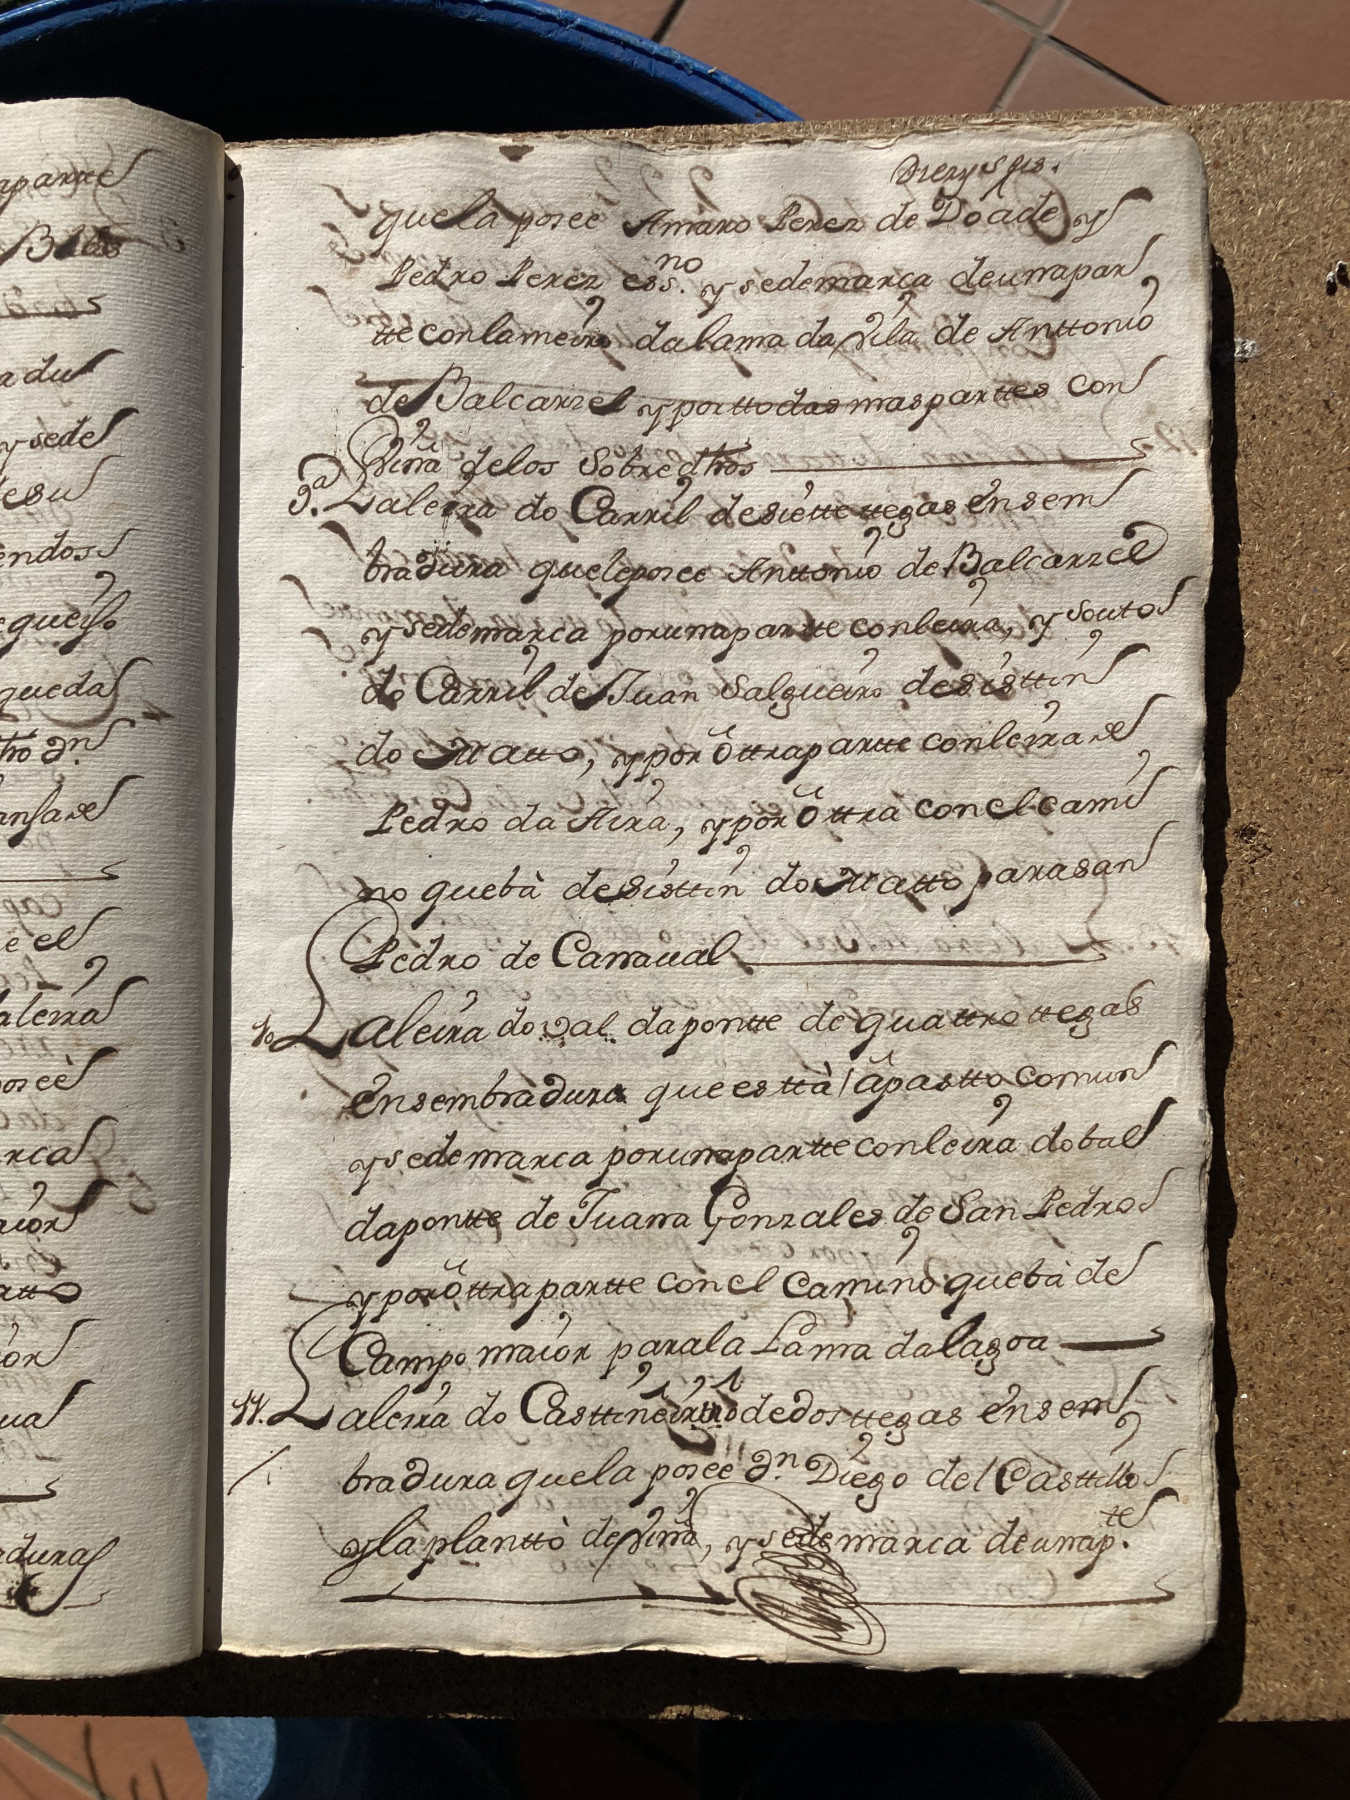 Diez y seis.
que la posee Amaro Perez de Doade y
Pedro Perez essno. y se demarca de una par
tte con lameiro da lama da Vila de Anttonio
de Balcarzel y por ttodas mas parttes con
Viña de los sobre dhos
9.a La leira do Carril de siette ttegas en sem
bradura que le posee Anttonio de Balcarzel
y se demarca por una partte con leira, y souto
do Carril de Juan Salgueiro de sisttin
do Matto, y por ôttra partte con leira de
Pedro da Aira, y por ôttra con el cami
no que bà de sisttin do Matto para san
Pedro de Canaval
10. La leira do val da pontte de quattro ttegas
en sembradura que esttà â pastto comun
y se demarca por una partte con leira do bal
da pontte de Juana Gonzales de San Pedro
y por ôttra partte con el camino que bà de
Campo maior para la Lama da lagoa
11. La leira do Casttiñeiriño de dos ttegas en sem
bradura que la posee dn. Diego del Casttillo
y la planttò de viña, y se demarca de una ptte.
aparte
Balc
a du
y sede
de su
endos
queixo
queda
tto dn.
ansare
e el
aleira
poseè
rca
aior
atto
or
ua
adura